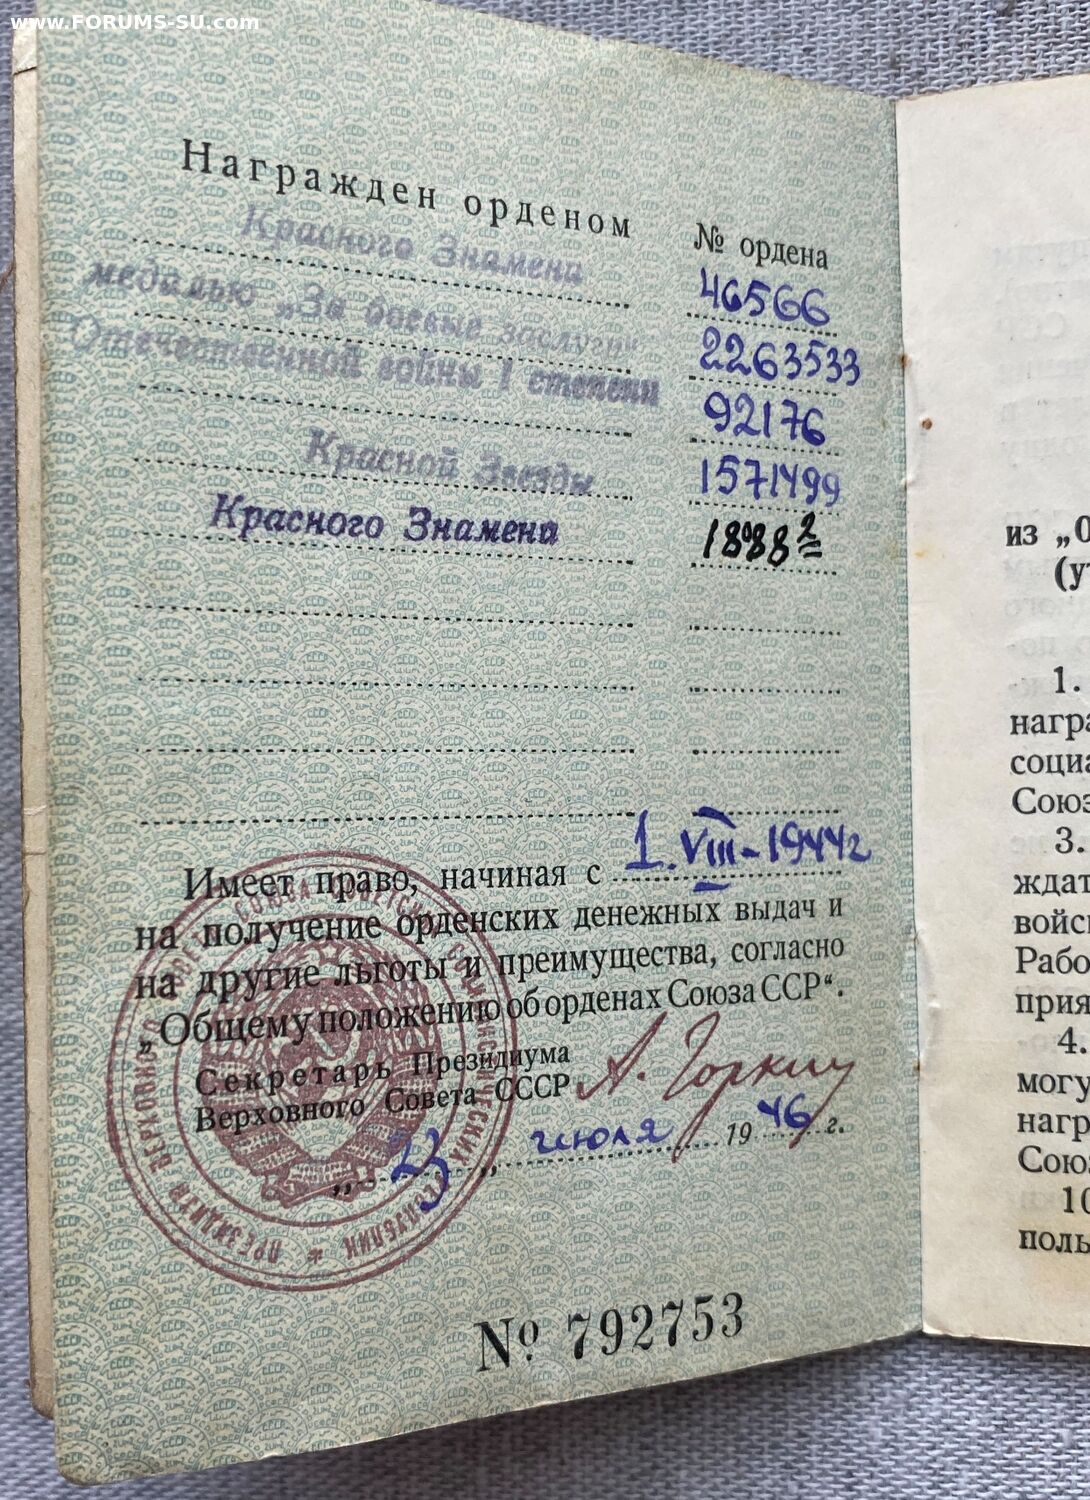 www.FORUMS-SU.com
Награжден орденом № ордена
Красного Знамени 46566
медалью „За боевые заслуги“ 2263533
Отечественной войны I степени 92176
Красной Звезды 1571499
Красного Знамени
Имеет право, начиная с 1.VIII-1944г
на получение орденских денежных выдач и
на другие льготы и преимущества, согласно
„Общему положению об орденах Союза ССР“.
Секретарь Президиума
Верховного Совета СССР А. Горкин
„23„ июля 1946 г.
ПРЕЗИДИУМ ВЕРХОВНОГО СОВЕТА СОЮЗА СОВЕТСКИХ СОЦИАЛИСТИЧЕСКИХ РЕСПУБЛИК
№ 792753
из „О
(у
1.
награ
социа
Союз
3.
ждат
войс
Рабо
прия
4.
могу
нагр
Союз
10
поль